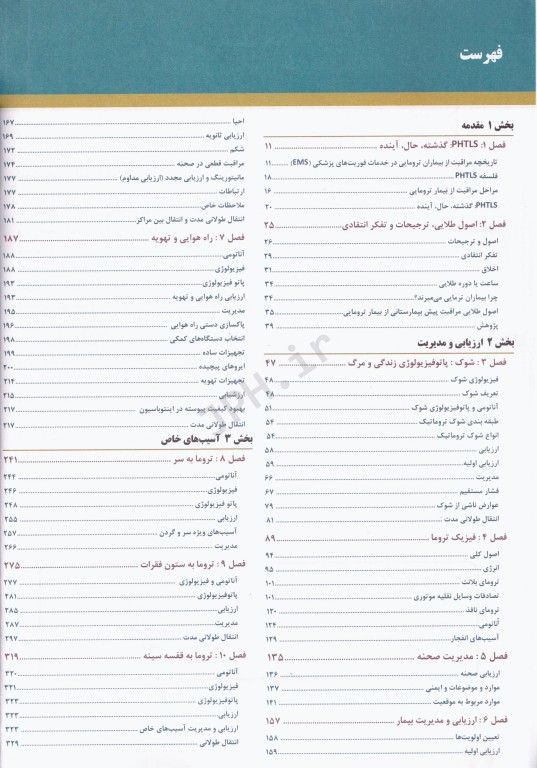 فهرست
بخش ۱ مقدمه
فصل ۱: PHTLS: گذشته، حال، آینده ........ ۱۱
تاریخچه مراقبت از بیماران ترومایی در خدمات فوریت‌های پزشکی (EMS) ........ ۱۱
فلسفه PHTLS ........ ۱۸
مراحل مراقبت از بیمار ترومایی ........ ۱۶
PHTLS: گذشته، حال، آینده ........ ۲۰
فصل ۲: اصول طلایی، ترجیحات و تفکر انتقادی ........ ۲۵
اصول و ترجیحات ........ ۲۶
تفکر انتقادی ........ ۲۹
اخلاق ........ ۳۱
ساعت یا دوره طلایی ........ ۳۴
چرا بیماران ترمایی می‌میرند؟ ........ ۳۴
اصول طلایی مراقبت پیش بیمارستانی از بیمار ترومایی ........ ۳۵
پژوهش ........ ۳۹
بخش ۲ ارزیابی و مدیریت
فصل ۳: شوک: پاتوفیزیولوژی زندگی و مرگ ........ ۴۷
فیزیولوژی شوک ........ ۴۸
تعریف شوک ........ ۴۸
آناتومی و پاتوفیزیولوژی شوک ........ ۵۱
طبقه بندی شوک تروماتیک ........ ۵۴
انواع شوک تروماتیک ........ ۵۴
ارزیابی ........ ۵۸
ارزیابی اولیه ........ ۵۹
مدیریت ........ ۶۶
فشار مستقیم ........ ۶۷
عوارض ناشی از شوک ........ ۷۹
انتقال طولانی مدت ........ ۸۱
فصل ۴: فیزیک تروما ........ ۸۹
اصول کلی ........ ۹۴
انرژی ........ ۹۵
ترومای بلانت ........ ۱۰۱
تصادفات وسایل نقلیه موتوری ........ ۱۰۱
ترومای نافذ ........ ۱۲۰
آناتومی ........ ۱۲۴
آسیب‌های انفجار ........ ۱۲۹
فصل ۵: مدیریت صحنه ........ ۱۳۵
ارزیابی صحنه ........ ۱۳۶
موارد و موضوعات و ایمنی ........ ۱۳۷
موارد مربوط به موقعیت ........ ۱۴۱
فصل ۶: ارزیابی و مدیریت بیمار ........ ۱۵۷
تعیین اولویت‌ها ........ ۱۵۸
ارزیابی اولیه ........ ۱۵۹
احیا ........ ۱۶۷
ارزیابی ثانویه ........ ۱۶۹
شکم ........ ۱۷۲
مراقبت قطعی در صحنه ........ ۱۷۴
مانیتورینگ و ارزیابی مجدد (ارزیابی مداوم) ........ ۱۷۷
ارتباطات ........ ۱۷۷
ملاحظات خاص ........ ۱۷۸
انتقال طولانی مدت و انتقال بین مراکز ........ ۱۸۱
فصل ۷: راه هوایی و تهویه ........ ۱۸۷
آناتومی ........ ۱۸۸
فیزیولوژی ........ ۱۸۸
پاتو فیزیولوژی ........ ۱۹۳
ارزیابی راه هوایی و تهویه ........ ۱۹۳
مدیریت ........ ۱۹۵
پاکسازی دستی راه هوایی ........ ۱۹۶
انتخاب دستگاه‌های کمکی ........ ۱۹۸
تجهیزات ساده ........ ۱۹۹
ایروهای پیچیده ........ ۲۰۰
تجهیزات تهویه ........ ۲۱۴
ارزشیابی ........ ۲۱۵
بهبود کیفیت پیوسته در اینتوباسیون ........ ۲۱۷
انتقال طولانی مدت ........ ۲۱۷
بخش ۳ آسیب‌های خاص
فصل ۸: تروما به سر ........ ۲۴۱
آناتومی ........ ۲۴۴
فیزیولوژی ........ ۲۴۶
پاتو فیزیولوژی ........ ۲۴۸
ارزیابی ........ ۲۵۵
آسیب‌های ویژه سر و گردن ........ ۲۵۷
مدیریت ........ ۲۶۶
فصل ۹: تروما به ستون فقرات ........ ۲۷۵
آناتومی و فیزیولوژی ........ ۲۷۷
پاتوفیزیولوژی ........ ۲۸۱
ارزیابی ........ ۲۸۵
مدیریت ........ ۲۸۷
انتقال طولانی مدت ........ ۲۹۷
فصل ۱۰: تروما به قفسه سینه ........ ۳۱۹
آناتومی ........ ۳۲۰
فیزیولوژی ........ ۳۲۱
پاتوفیزیولوژی ........ ۳۲۳
ارزیابی ........ ۳۲۳
ارزیابی و مدیریت آسیب‌های خاص ........ ۳۲۳
انتقال طولانی ........ ۳۲۹
JPH.ir